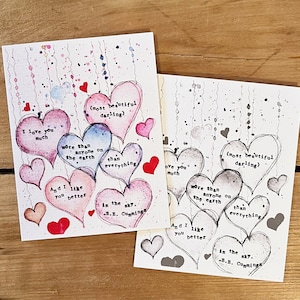 (most beautiful
darling)
I love you
much
more than
anyone on
the earth
than
everything
And I like
you better
in the sky.
-E.E. Cummings
(most beautiful
darling)
love you
much
more than
anyone on
the earth
than
everything
And I like
you better
in the sky.
-E.E. Cummings